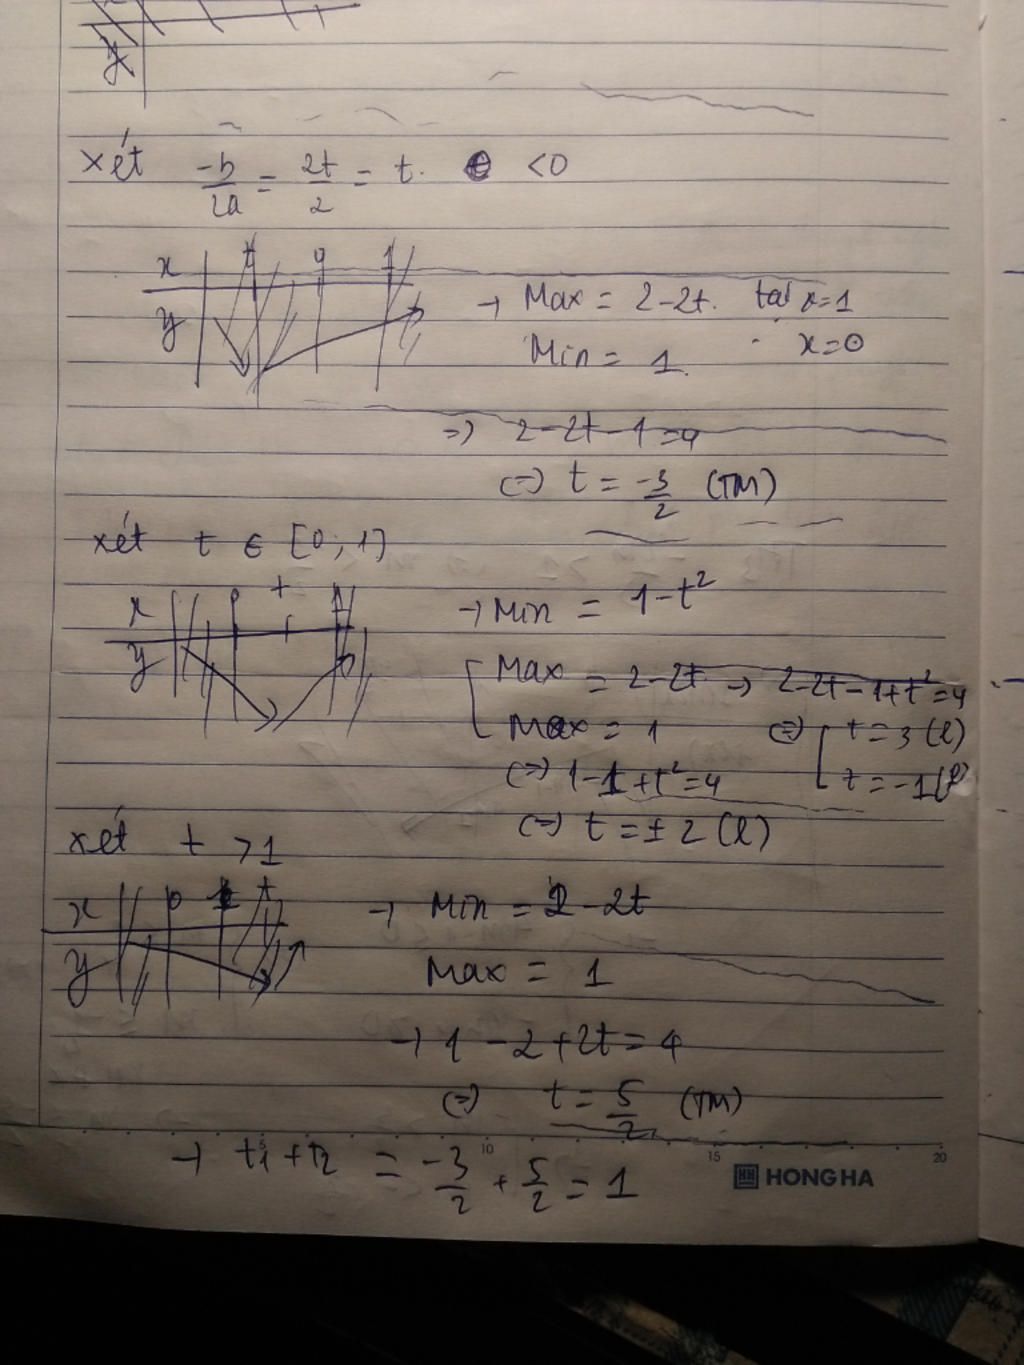 y
xét -b/2a = 2t/2 = t. <0
x t 0 1
y → Max = 2-2t. tại x=1
Min = 1. x=0
=> 2-2t-1=4
(=) t = -3/2 (TM)
xét t ∈ [0;1]
x 0 t 1
y → Min = 1-t²
[ Max = 2-2t → 2-2t-1+t²=4
Max = 1 (=) [ t=3(l)
(=) 1-1+t²=4 t=-1(l)
(=) t = ±2 (l)
xét t >1
x 0 1 t → Min = 2-2t
y Max = 1
→ 1-2+2t=4
(=) t = 5/2 (TM)
→ t1+t2 = -3/2 + 5/2 = 1
5 10 15 20
HH HONG HA